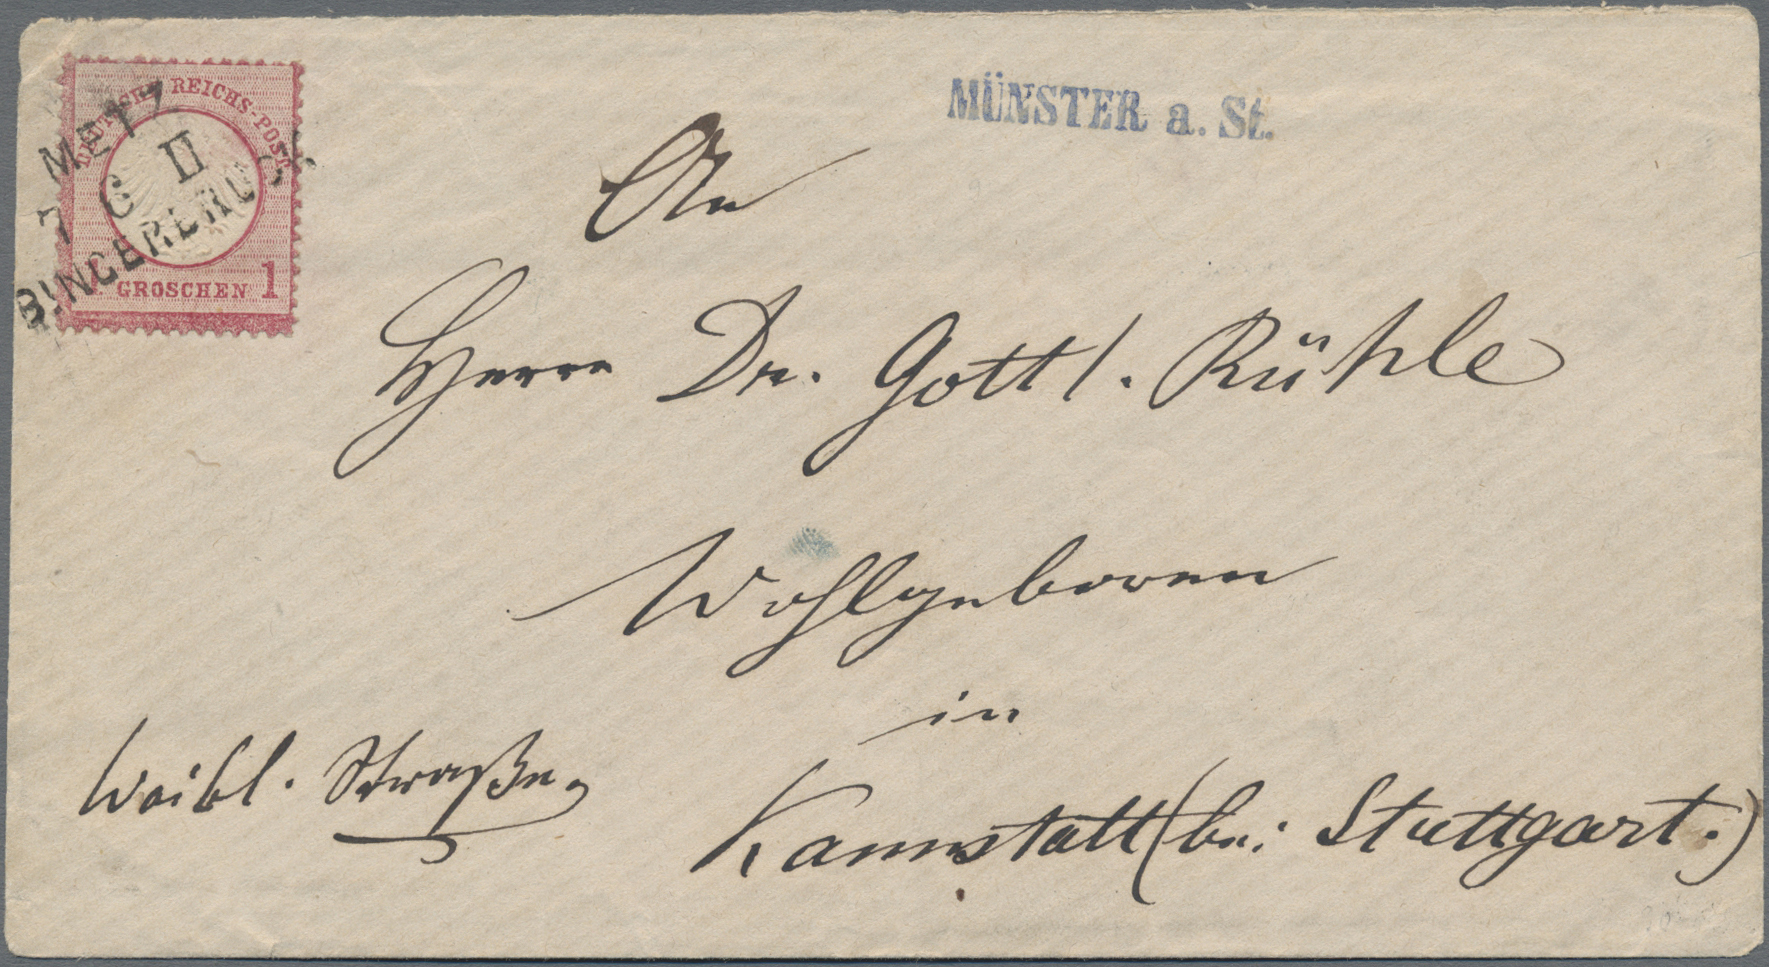 DEUTSCHE REICHS-POST
METZ
7 6 II
BINGERBRÜCK
1 GROSCHEN 1
MÜNSTER a. St.
An
Herrn Dr. Gottl. Rühle
Wohlgeboren
in
Kannstatt (bei Stuttgart.)
Waibl. Straße